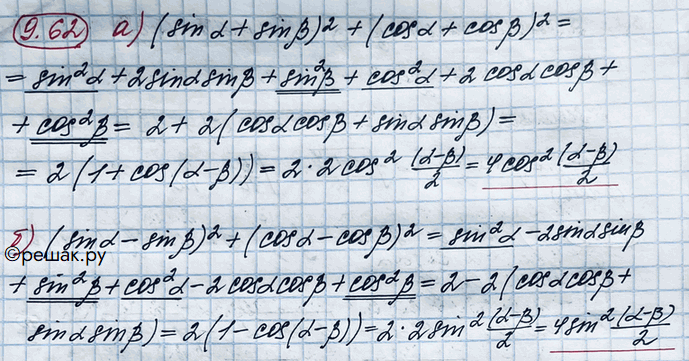 9.62 а) (sin α + sin β)² + (cos α + cos β)² =
= sin²α + 2 sin α sin β + sin²β + cos²α + 2 cos α cos β +
+ cos²β = 2 + 2 (cos α cos β + sin α sin β) =
= 2 (1 + cos (α - β)) = 2 · 2 cos² (α-β)/2 = 4 cos² (α-β)/2
б) (sin α - sin β)² + (cos α - cos β)² = sin²α - 2 sin α sin β
©решак.ру
+ sin²β + cos²α - 2 cos α cos β + cos²β = 2 - 2 (cos α cos β +
sin α sin β) = 2 (1 - cos (α - β)) = 2 · 2 sin² (α-β)/2 = 4 sin² (α-β)/2